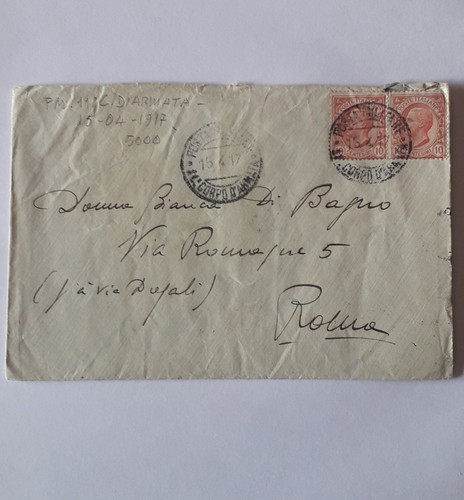 C. D'ARMATA -
15-04-1917
5000
POSTA MILITARE
15.4.17
CORPO D'ARMATA
POSTA MILITARE
15.4.17
CORPO D'ARMATA
POSTE ITALIANE
10
10
Donna Bianca Di Bagno
Via Romagne 5
(già via Dogali)
Roma